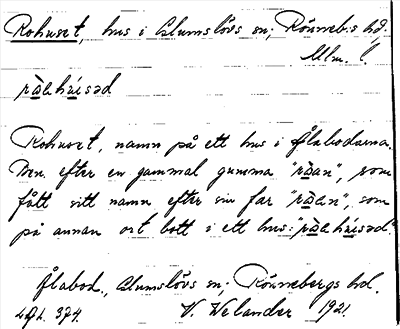 Rohuset, hus i Glumslövs sn; Rönneb:s hd.
Mlm. l.
ròahúsəd
Rohuset, namn på ett hus i Ålabodarna.
Mn. efter en gammal gumma "ròan", som
fått sitt namn efter sin far "ròan", som
på annan ort bott i ett hus: "ròahúsəd".
Ålabod., Glumslövs sn; Rönnebergs hd.
374. V. Welander 1921.